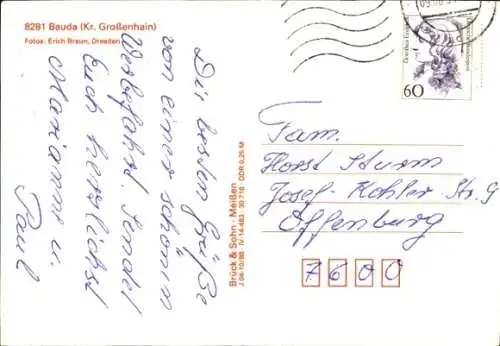 8281 Bauda (Kr. Großenhain)
Fotos: Erich Braun, Dresden
Die besten Grüße
von einer schönen
Werbefahrt. Sendet
Euch herzlichst
Mariann u.
Paul
Brück & Sohn · Meißen
J 04-10/90 IV-14-483 · 30 718 DDR 0,25 M
60
Fam.
Horst Sturm
Josef-Kohler Str. 9
Offenburg
7600